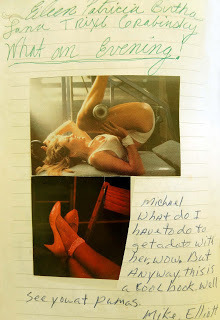 Eileen Patricia Bertha
Lana Trixl Corabinsky
What an Evening.
Michael
What do I
have to do to
get a date with
her, wow. But
Anyway. this is
a Kool book. Well
see you at Pamas.
Mike. Elliott